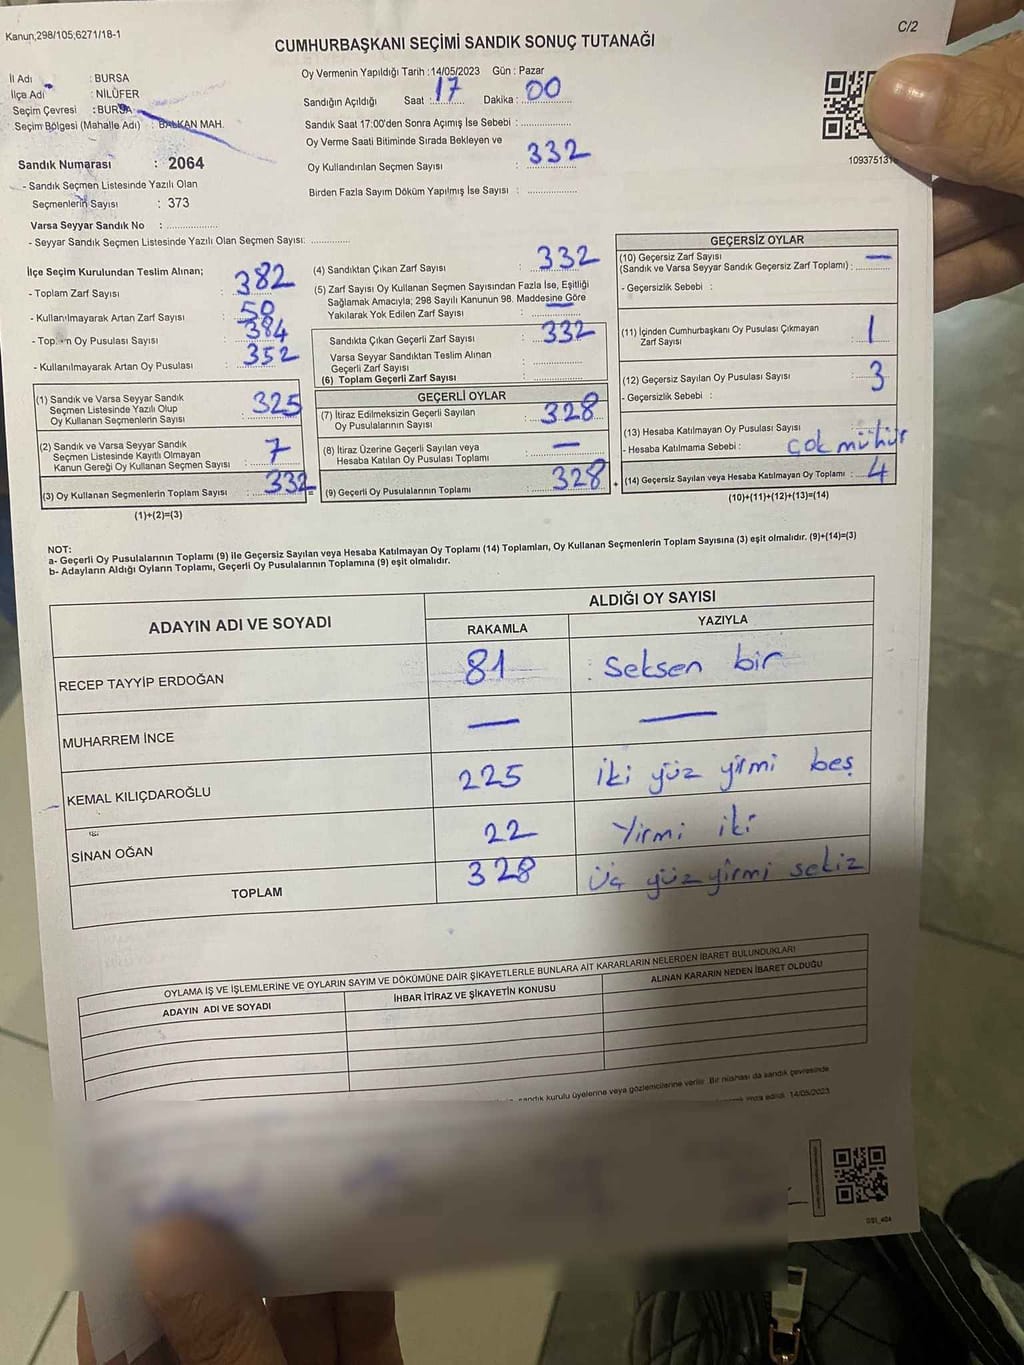 Kanun,298/105;6271/18-1
C/2
CUMHURBAŞKANI SEÇİMİ SANDIK SONUÇ TUTANAĞI
İl Adı : BURSA
İlçe Adı : NİLÜFER
Seçim Çevresi : BURSA
Seçim Bölgesi (Mahalle Adı) : BALKAN MAH.
Sandık Numarası : 2064
- Sandık Seçmen Listesinde Yazılı Olan
Seçmenlerin Sayısı : 373
Varsa Seyyar Sandık No :
- Seyyar Sandık Seçmen Listesinde Yazılı Olan Seçmen Sayısı:
Oy Vermenin Yapıldığı Tarih :14/05/2023 Gün : Pazar
Sandığın Açıldığı Saat : 17 Dakika : 00
Sandık Saat 17:00'den Sonra Açımış İse Sebebi :
Oy Verme Saati Bitiminde Sırada Bekleyen ve
Oy Kullandırılan Seçmen Sayısı : 332
Birden Fazla Sayım Döküm Yapılmış İse Sayısı :
İlçe Seçim Kurulundan Teslim Alınan;
- Toplam Zarf Sayısı : 382
- Kullanılmayarak Artan Zarf Sayısı : 50
Oy Pusulası Sayısı : 384
- Kullanılmayarak Artan Oy Pusulası : 352
(1) Sandık ve Varsa Seyyar Sandık
Seçmen Listesinde Yazılı Olup
Oy Kullanan Seçmenlerin Sayısı : 325
(2) Sandık ve Varsa Seyyar Sandık
Seçmen Listesinde Kayıtlı Olmayan
Kanun Gereği Oy Kullanan Seçmen Sayısı : 7
(3) Oy Kullanan Seçmenlerin Toplam Sayısı : 332
(1)+(2)=(3)
(4) Sandıktan Çıkan Zarf Sayısı : 332
(5) Zarf Sayısı Oy Kullanan Seçmen Sayısından Fazla İse, Eşitliği
Sağlamak Amacıyla; 298 Sayılı Kanunun 98. Maddesine Göre
Yakılarak Yok Edilen Zarf Sayısı : —
Sandıkta Çıkan Geçerli Zarf Sayısı : 332
Varsa Seyyar Sandıktan Teslim Alınan
Geçerli Zarf Sayısı :
(6) Toplam Geçerli Zarf Sayısı :
GEÇERLİ OYLAR
(7) İtiraz Edilmeksizin Geçerli Sayılan
Oy Pusulasının Sayısı : 328
(8) İtiraz Üzerine Geçerli Sayılan veya
Hesaba Katılan Oy Pusulası Toplamı : —
= (9) Geçerli Oy Pusulalarının Toplamı : 328
GEÇERSİZ OYLAR
(10) Geçersiz Zarf Sayısı
(Sandık ve Varsa Seyyar Sandık Geçersiz Zarf Toplamı) : —
- Geçersizlik Sebebi :
(11) İçinden Cumhurbaşkanı Oy Pusulası Çıkmayan
Zarf Sayısı : 1
(12) Geçersiz Sayılan Oy Pusulası Sayısı : 3
- Geçersizlik Sebebi :
(13) Hesaba Katılmayan Oy Pusulası Sayısı :
- Hesaba Katılmama Sebebi : Çok mühür
+ (14) Geçersiz Sayılan veya Hesaba Katılmayan Oy Toplamı : 4
(10)+(11)+(12)+(13)=(14)
NOT:
a- Geçerli Oy Pusulalarının Toplamı (9) ile Geçersiz Sayılan veya Hesaba Katılmayan Oy Toplamı (14) Toplamları, Oy Kullanan Seçmenlerin Toplam Sayısına (3) eşit olmalıdır. (9)+(14)=(3)
b- Adayların Aldığı Oyların Toplamı, Geçerli Oy Pusulalarının Toplamına (9) eşit olmalıdır.
ADAYIN ADI VE SOYADI ALDIĞI OY SAYISI
RAKAMLA YAZIYLA
RECEP TAYYİP ERDOĞAN 81 Seksen bir
MUHARREM İNCE — —
KEMAL KILIÇDAROĞLU 225 iki yüz yirmi beş
SİNAN OĞAN 22 Yirmi iki
TOPLAM 328 üç yüz yirmi sekiz
OYLAMA İŞ VE İŞLEMLERİNE VE OYLARIN SAYIM VE DÖKÜMÜNE DAİR ŞİKAYETLERLE BUNLARA AİT KARARLARIN NELERDEN İBARET BULUNDUKLARI
ADAYIN ADI VE SOYADI İHBAR İTİRAZ VE ŞİKAYETİN KONUSU ALINAN KARARIN NEDEN İBARET OLDUĞU
sandık kurulu üyelerine veya gözlemcilerine verilir. Bir nüshası da sandık çevresinde
14/05/2023